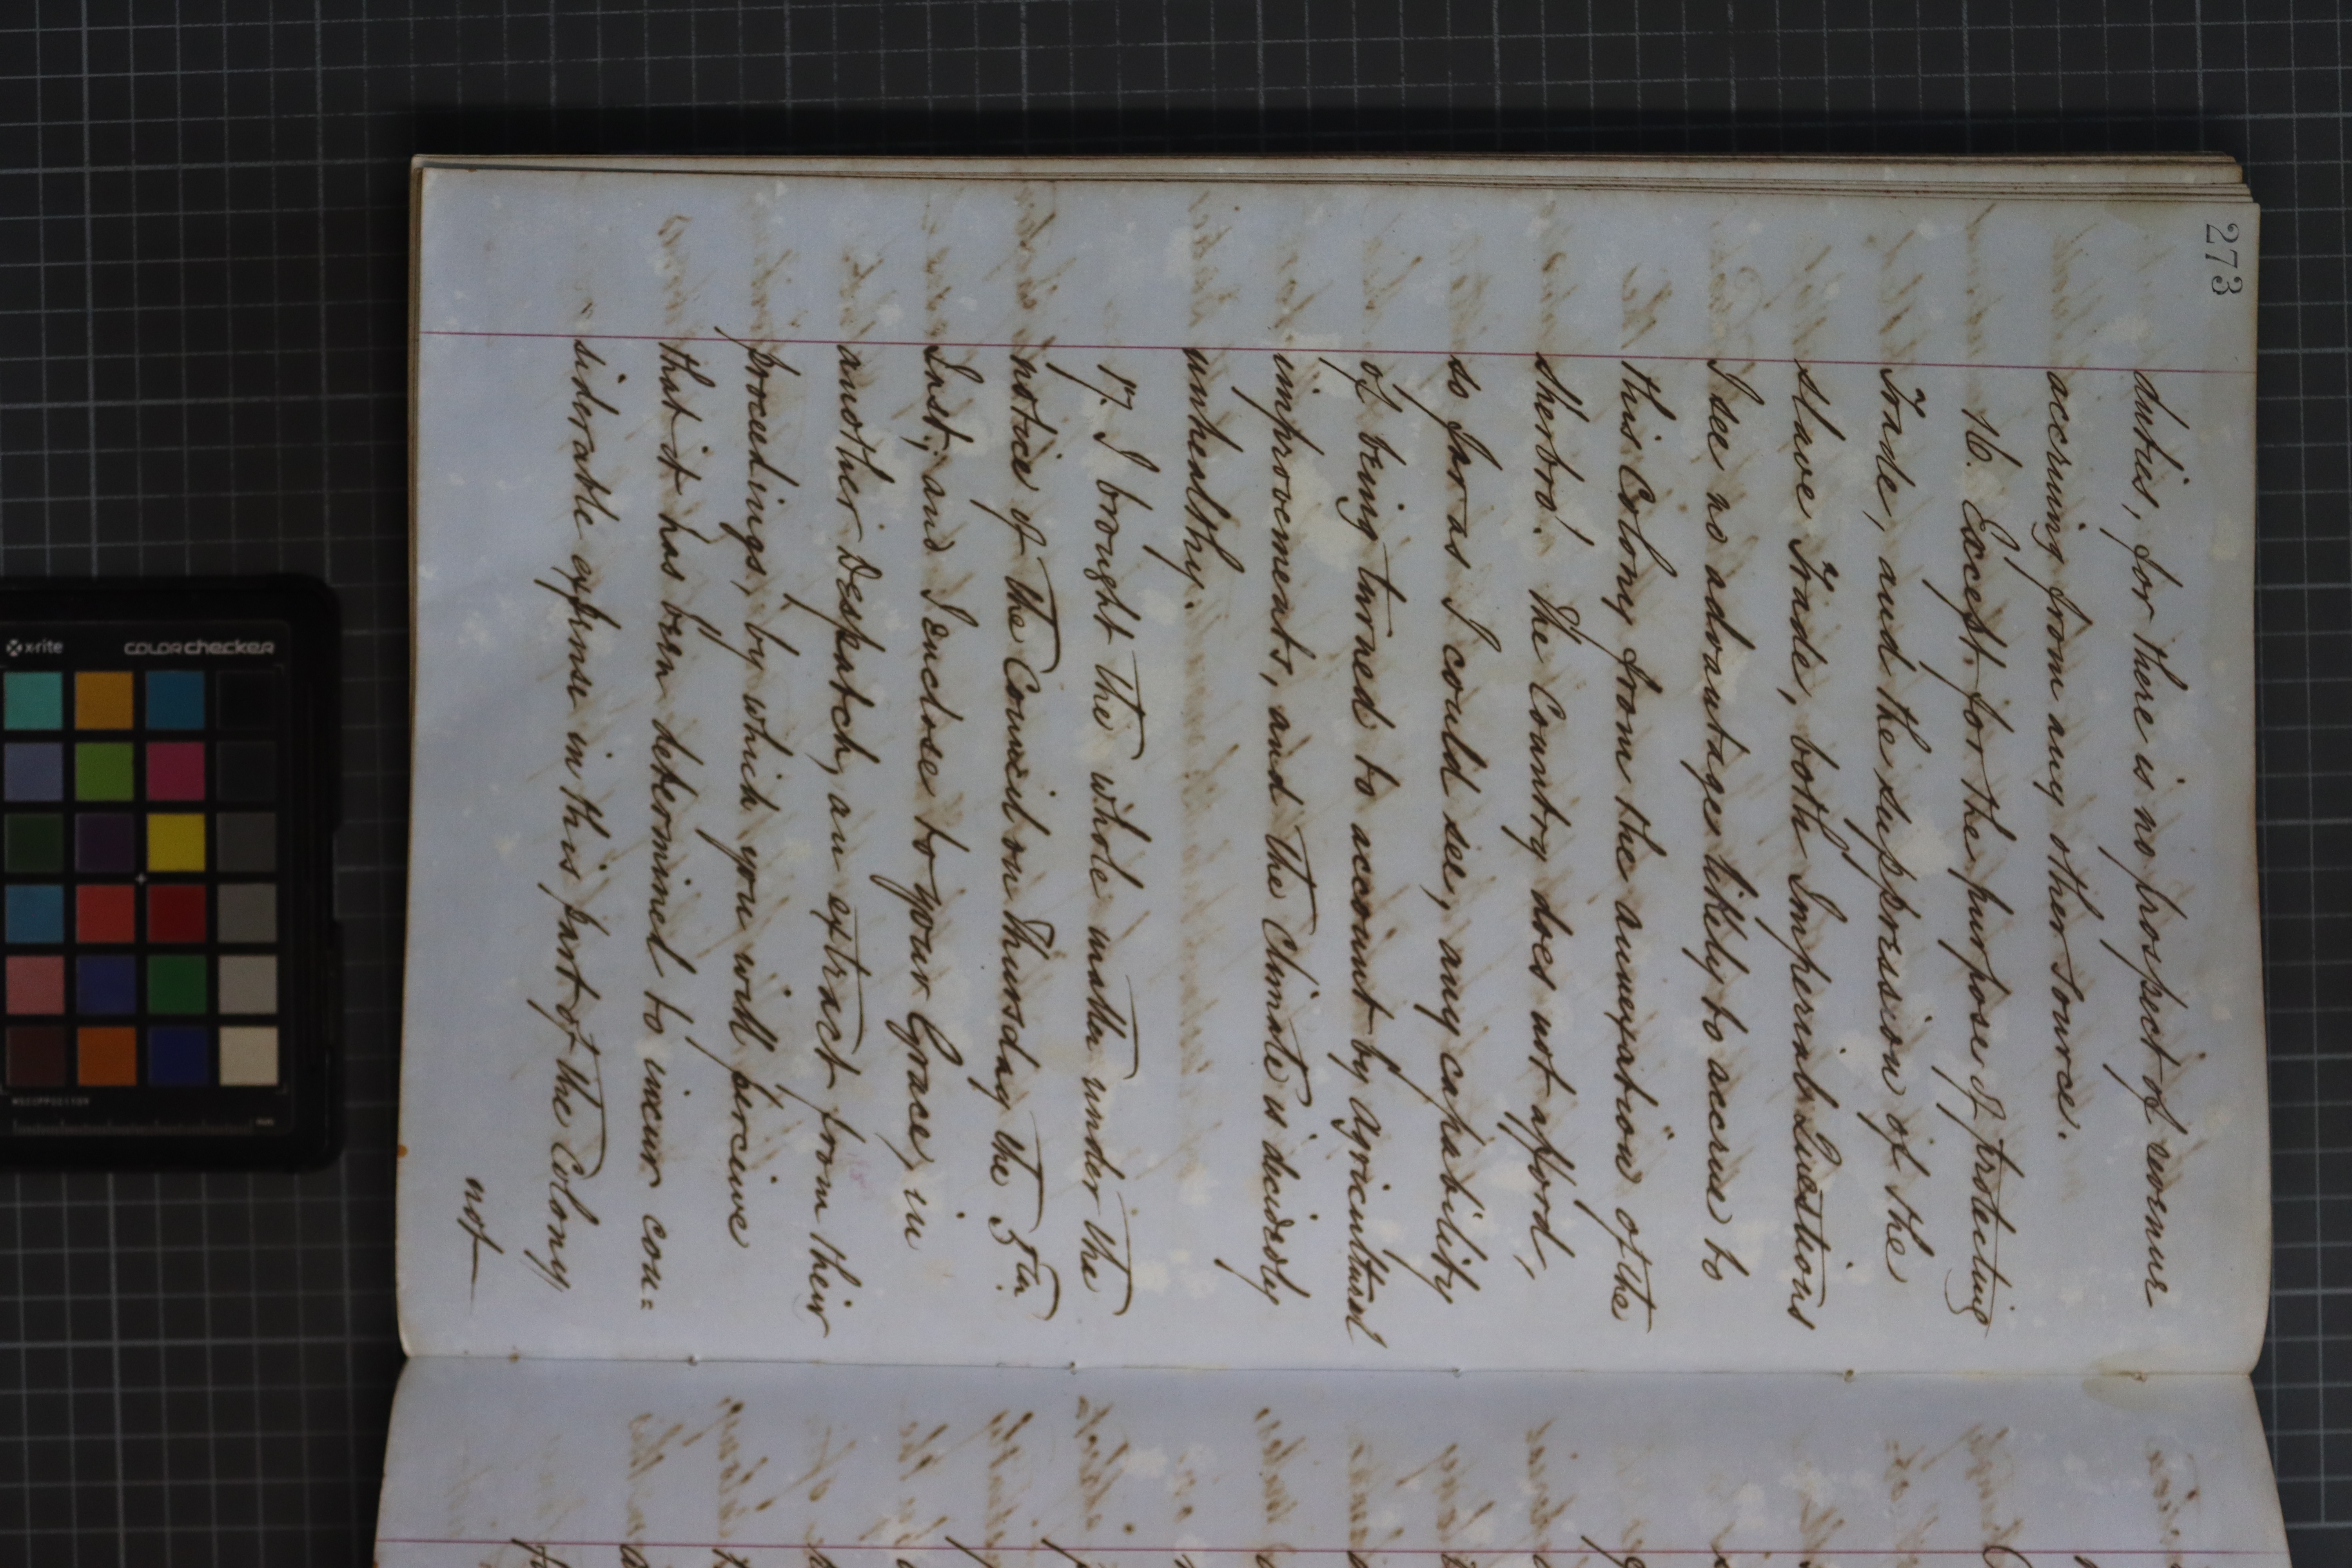 273
duties, for there is no prospect of revenue
accruing from any other source.
16. Except for the purpose of protecting
Trade, and the suppression of the
Slave Trade, both Imperial Questions
I see no advantages likely to accrue to
this Colony from the annexation of the
Sherbro'. The Country does not afford,
so far as I could see, any capability
of being turned to account by Agricultural
improvements, and the Climate is decidedly
unhealthy.
17. I brought the whole matter under the
notice of the Council on Thursday the 5th.
Inst; and I enclose to your Grace, in
another Despatch, an extract from their
proceedings, by which you will perceive
that it has been determined to incur con=
siderable expense in this part of the Colony
not
x-rite
colorchecker